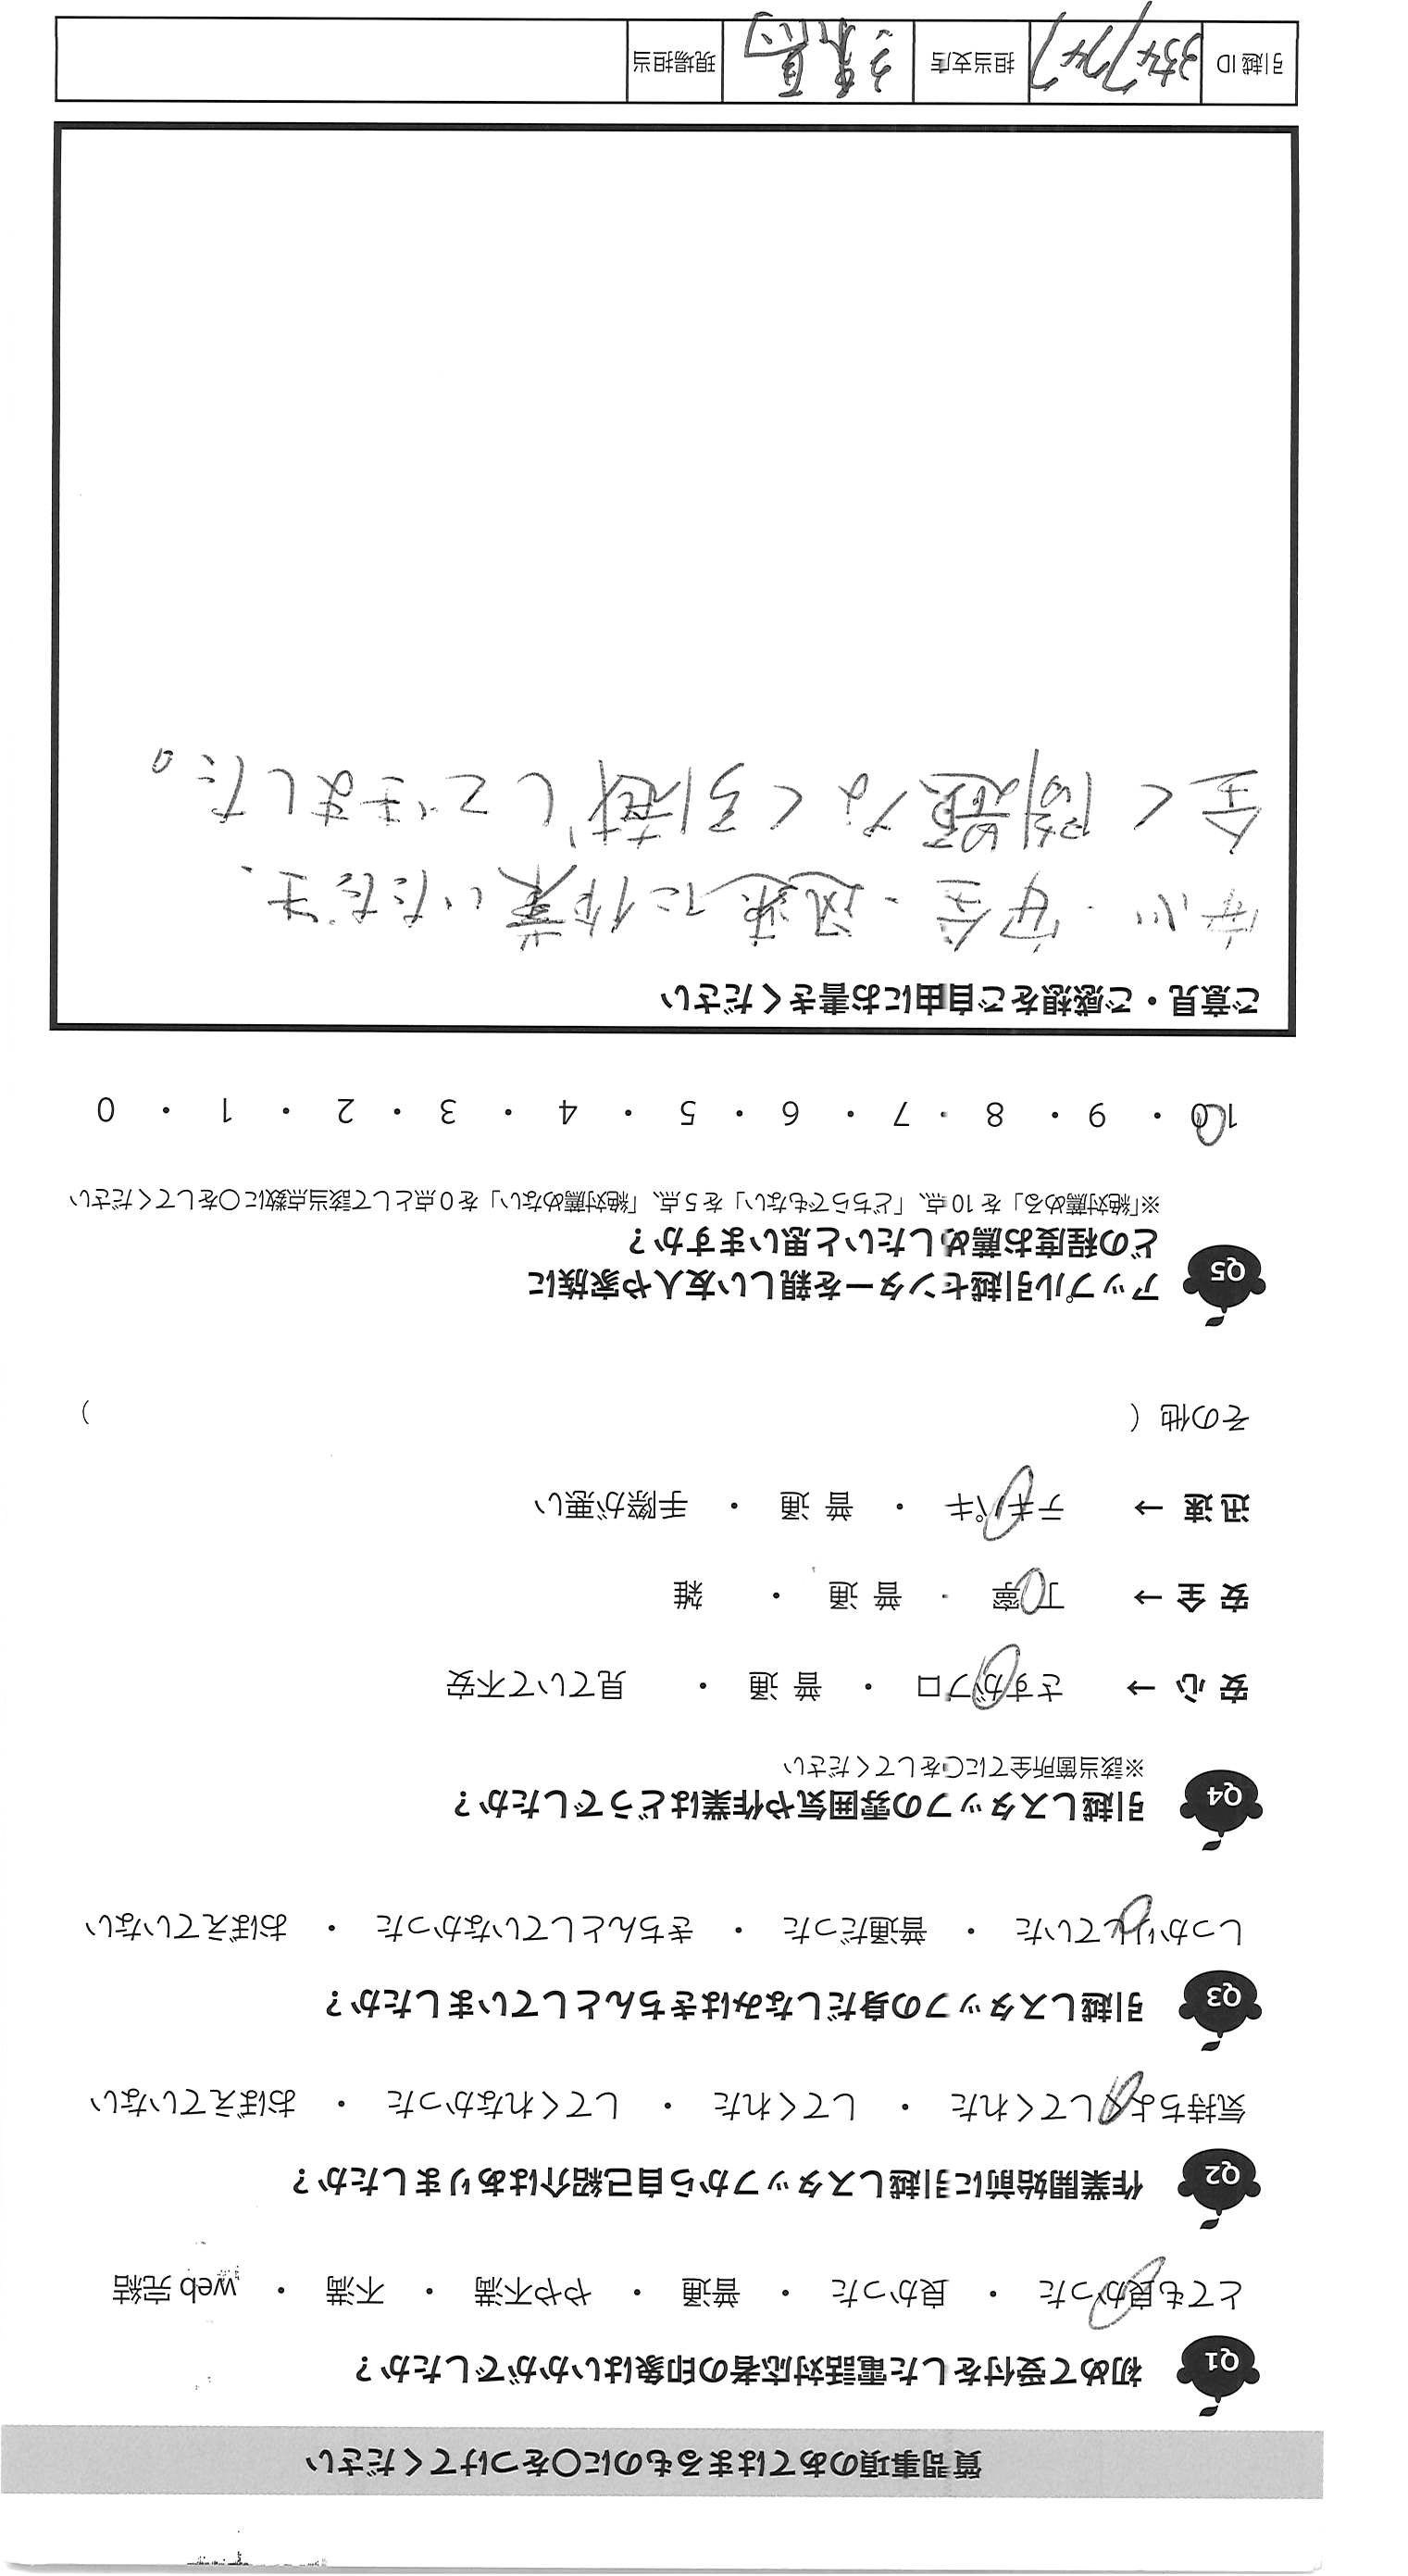 質問事項のあてはまるものに○をつけてください
Q1 初めて受付をした電話対応者の印象はいかがでしたか？
とても良かった ・ 良かった ・ 普通 ・ やや不満 ・ 不満 ・ web 完結
Q2 作業開始前に引越しスタッフから自己紹介はありましたか？
気持ちよくしてくれた ・ してくれた ・ してくれなかった ・ おぼえていない
Q3 引越しスタッフの身だしなみはきちんとしていましたか？
しっかりしていた ・ 普通だった ・ きちんとしていなかった ・ おぼえていない
Q4 引越しスタッフの雰囲気や作業はどうでしたか？
※該当箇所全てに○をしてください
安 心 → さすがプロ ・ 普 通 ・ 見ていて不安
安 全 → 丁寧 ・ 普 通 ・ 雑
迅 速 → テキパキ ・ 普 通 ・ 手際が悪い
その他（ ）
Q5 アップル引越センターを親しい友人や家族に
どの程度お薦めしたいと思いますか？
※「絶対薦める」を 10 点、「どちらでもない」を 5 点、「絶対薦めない」を 0 点として該当点数に○をしてください
10 ・ 9 ・ 8 ・ 7 ・ 6 ・ 5 ・ 4 ・ 3 ・ 2 ・ 1 ・ 0
ご意見・ご感想をご自由にお書きください
安心・安全・迅速に作業いただき、
全く問題なく引越しできました。
引越 ID 3547747 担当支店 現場担当